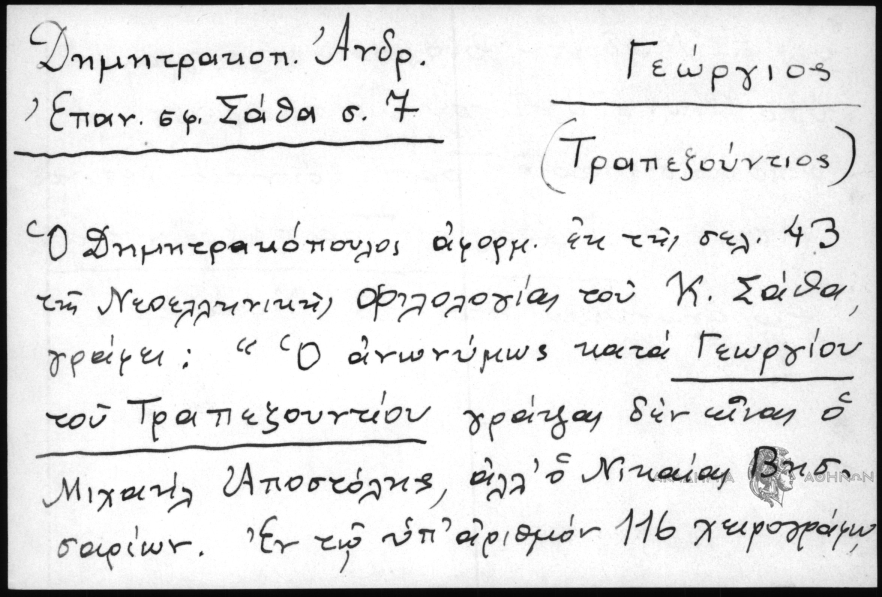 Δημητρακοπ. Ἀνδρ.
Ἐπαν. σφ. Σάθα σ. 7
Γεώργιος
(Τραπεζούντιος)
Ὁ Δημητρακόπουλος ἀφορμ. ἐκ τῆς σελ. 43
τῆς Νεοελληνικῆς Φιλολογίας τοῦ Κ. Σάθα,
γράφει: " Ὁ ἀνωνύμως κατά Γεωργίου
τοῦ Τραπεζουντίου γράψας δέν εἶναι ὁ
Μιχαήλ Ἀποστόλης, ἀλλ' ὁ Νικαίας Βησ-
σαρίων. Ἐν τῷ ὑπ' ἀριθμόν 116 χειρογράφῳ
ΑΚΑΔΗΜΙΑ ΑΘΗΝΩΝ